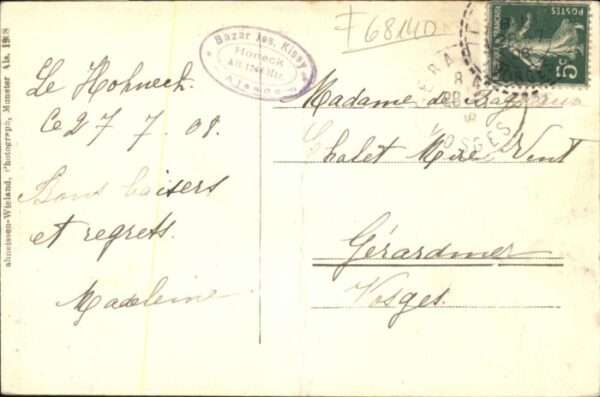 F 68140
Bazar Jos. Kissy
Honeck
Alt. 1366 Mtr.
Alsace
POSTES
5c
VOSGES
Le Hohneck.
Ce 27 7. 08.
Bons baisers
et regrets.
Madeleine
Madame de
Chalet Mire Vent
Gérardmer
Vosges.
Wieland, Photograph, Munster Als. 1908